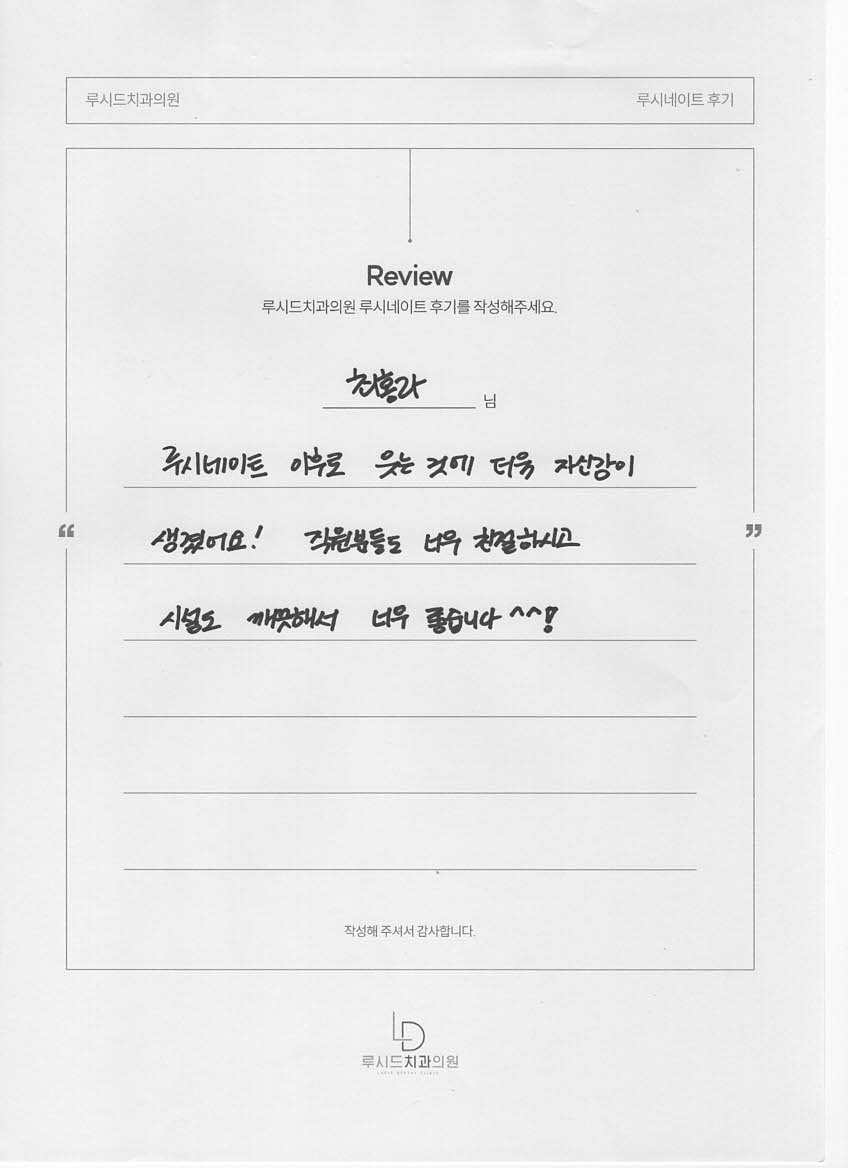 루시드치과의원
루시네이트 후기
Review
루시드치과의원 루시네이트 후기를 작성해주세요.
최홍라 님
루시네이트 이후로 웃는 것에 더욱 자신감이
“ ”
생겼어요! 직원분들도 너무 친절하시고
시설도 깨끗해서 너무 좋습니다 ^^!
작성해 주셔서 감사합니다.
LD
루시드치과의원
LUCID DENTAL CLINIC